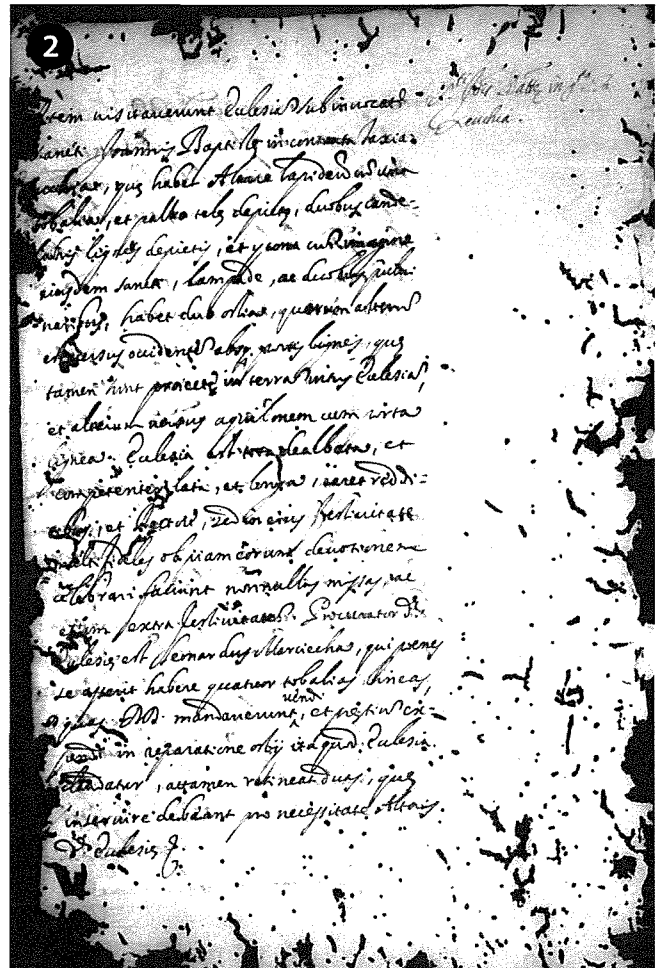 2
Item visitaverunt Ecclesiã sub invocatẽ
sancti Joannis Baptistę in contrata Taxia:
quę habet Altare lapideũ cũ una
tobalia, et pallio telę depictę, duobus cande-
labris ligneis depictis, et ycona cũ imagine
eiusdem sancti, lampade, ac duobus
habet duo ostia, quorum alterũ
est versus occidentẽ absq portis ligneis, quę
tamen sunt proiectę in terra intus Ecclesiã,
et alterum versus aquilonem cum porta
lignea. Ecclesia est tota dealbata, et
competenter lata, et longa, caret reddi-
et Rectore, sed in eius festivitate
fideles ob piam eorum devotionem
celebrari faciunt nonnullas missas, ac
etiam extra festivitatẽ. Procurator dę
Ecclesię est Bernardus Marciecha, qui penes
se asserit habere quatuor tobalias lineas,
quas DD. mandaverunt vendi, et pretiũ ex-
pendi in reparatione ostij ita quod Ecclesia
claudatur, attamen retineat duas, quę
inservire debeant pro necessitate Altaris
dę Ecclesię &